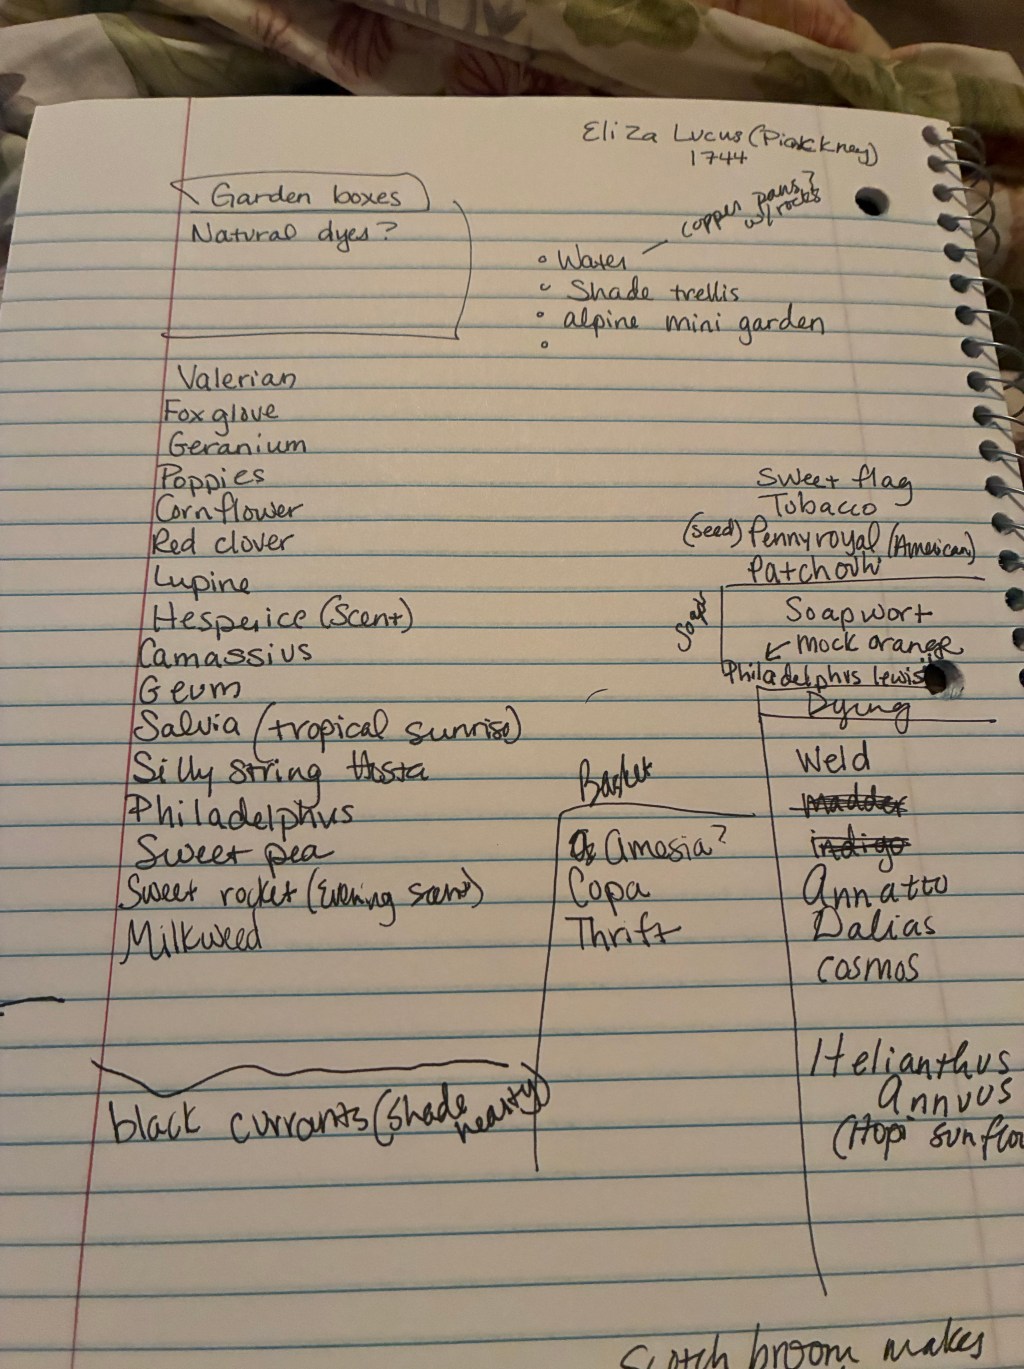 Eliza Lucus (Pinckney)
1744
Garden boxes
Natural dyes?
copper pans?
w/ rocks
Water
Shade trellis
alpine mini garden
Valerian
Fox glove
Geranium
Poppies
Cornflower
Red clover
Lupine
Hesperice (Scent)
Camassius
Geum
Salvia (tropical sunrise)
Silly string Hosta
Philadelphus
Sweet pea
Sweet rocket (Evening scent)
Milkweed
black currants (shade
nearty)
Sweet flag
Tobacco
(seed) Pennyroyal (American)
Patchouli
Soap
Soapwort
mock orange
Philadelphus lewisii
Basket
Amesia?
Copa
Thrift
Dying
Weld
madder
indigo
Annatto
Dalias
cosmos
Helianthus
annuus
(Hopi sunflo
Scotch broom makes